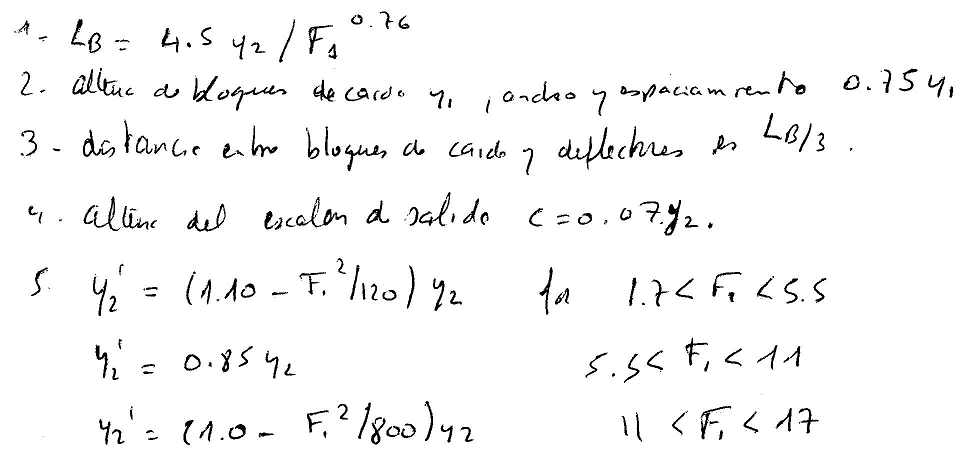 1- LB = 4.5 y2 / F1^0.76
2. altura de bloques de caida y1, ancho y espaciamiento 0.75 y1
3 - distancia entre bloques de caida y deflectores es LB/3.
4. altura del escalon de salida c = 0.07 y2.
5. y2' = (1.10 - F1²/120) y2 for 1.7 < F1 < 5.5
y2' = 0.85 y2 5.5 < F1 < 11
y2' = (1.0 - F1²/800) y2 11 < F1 < 17